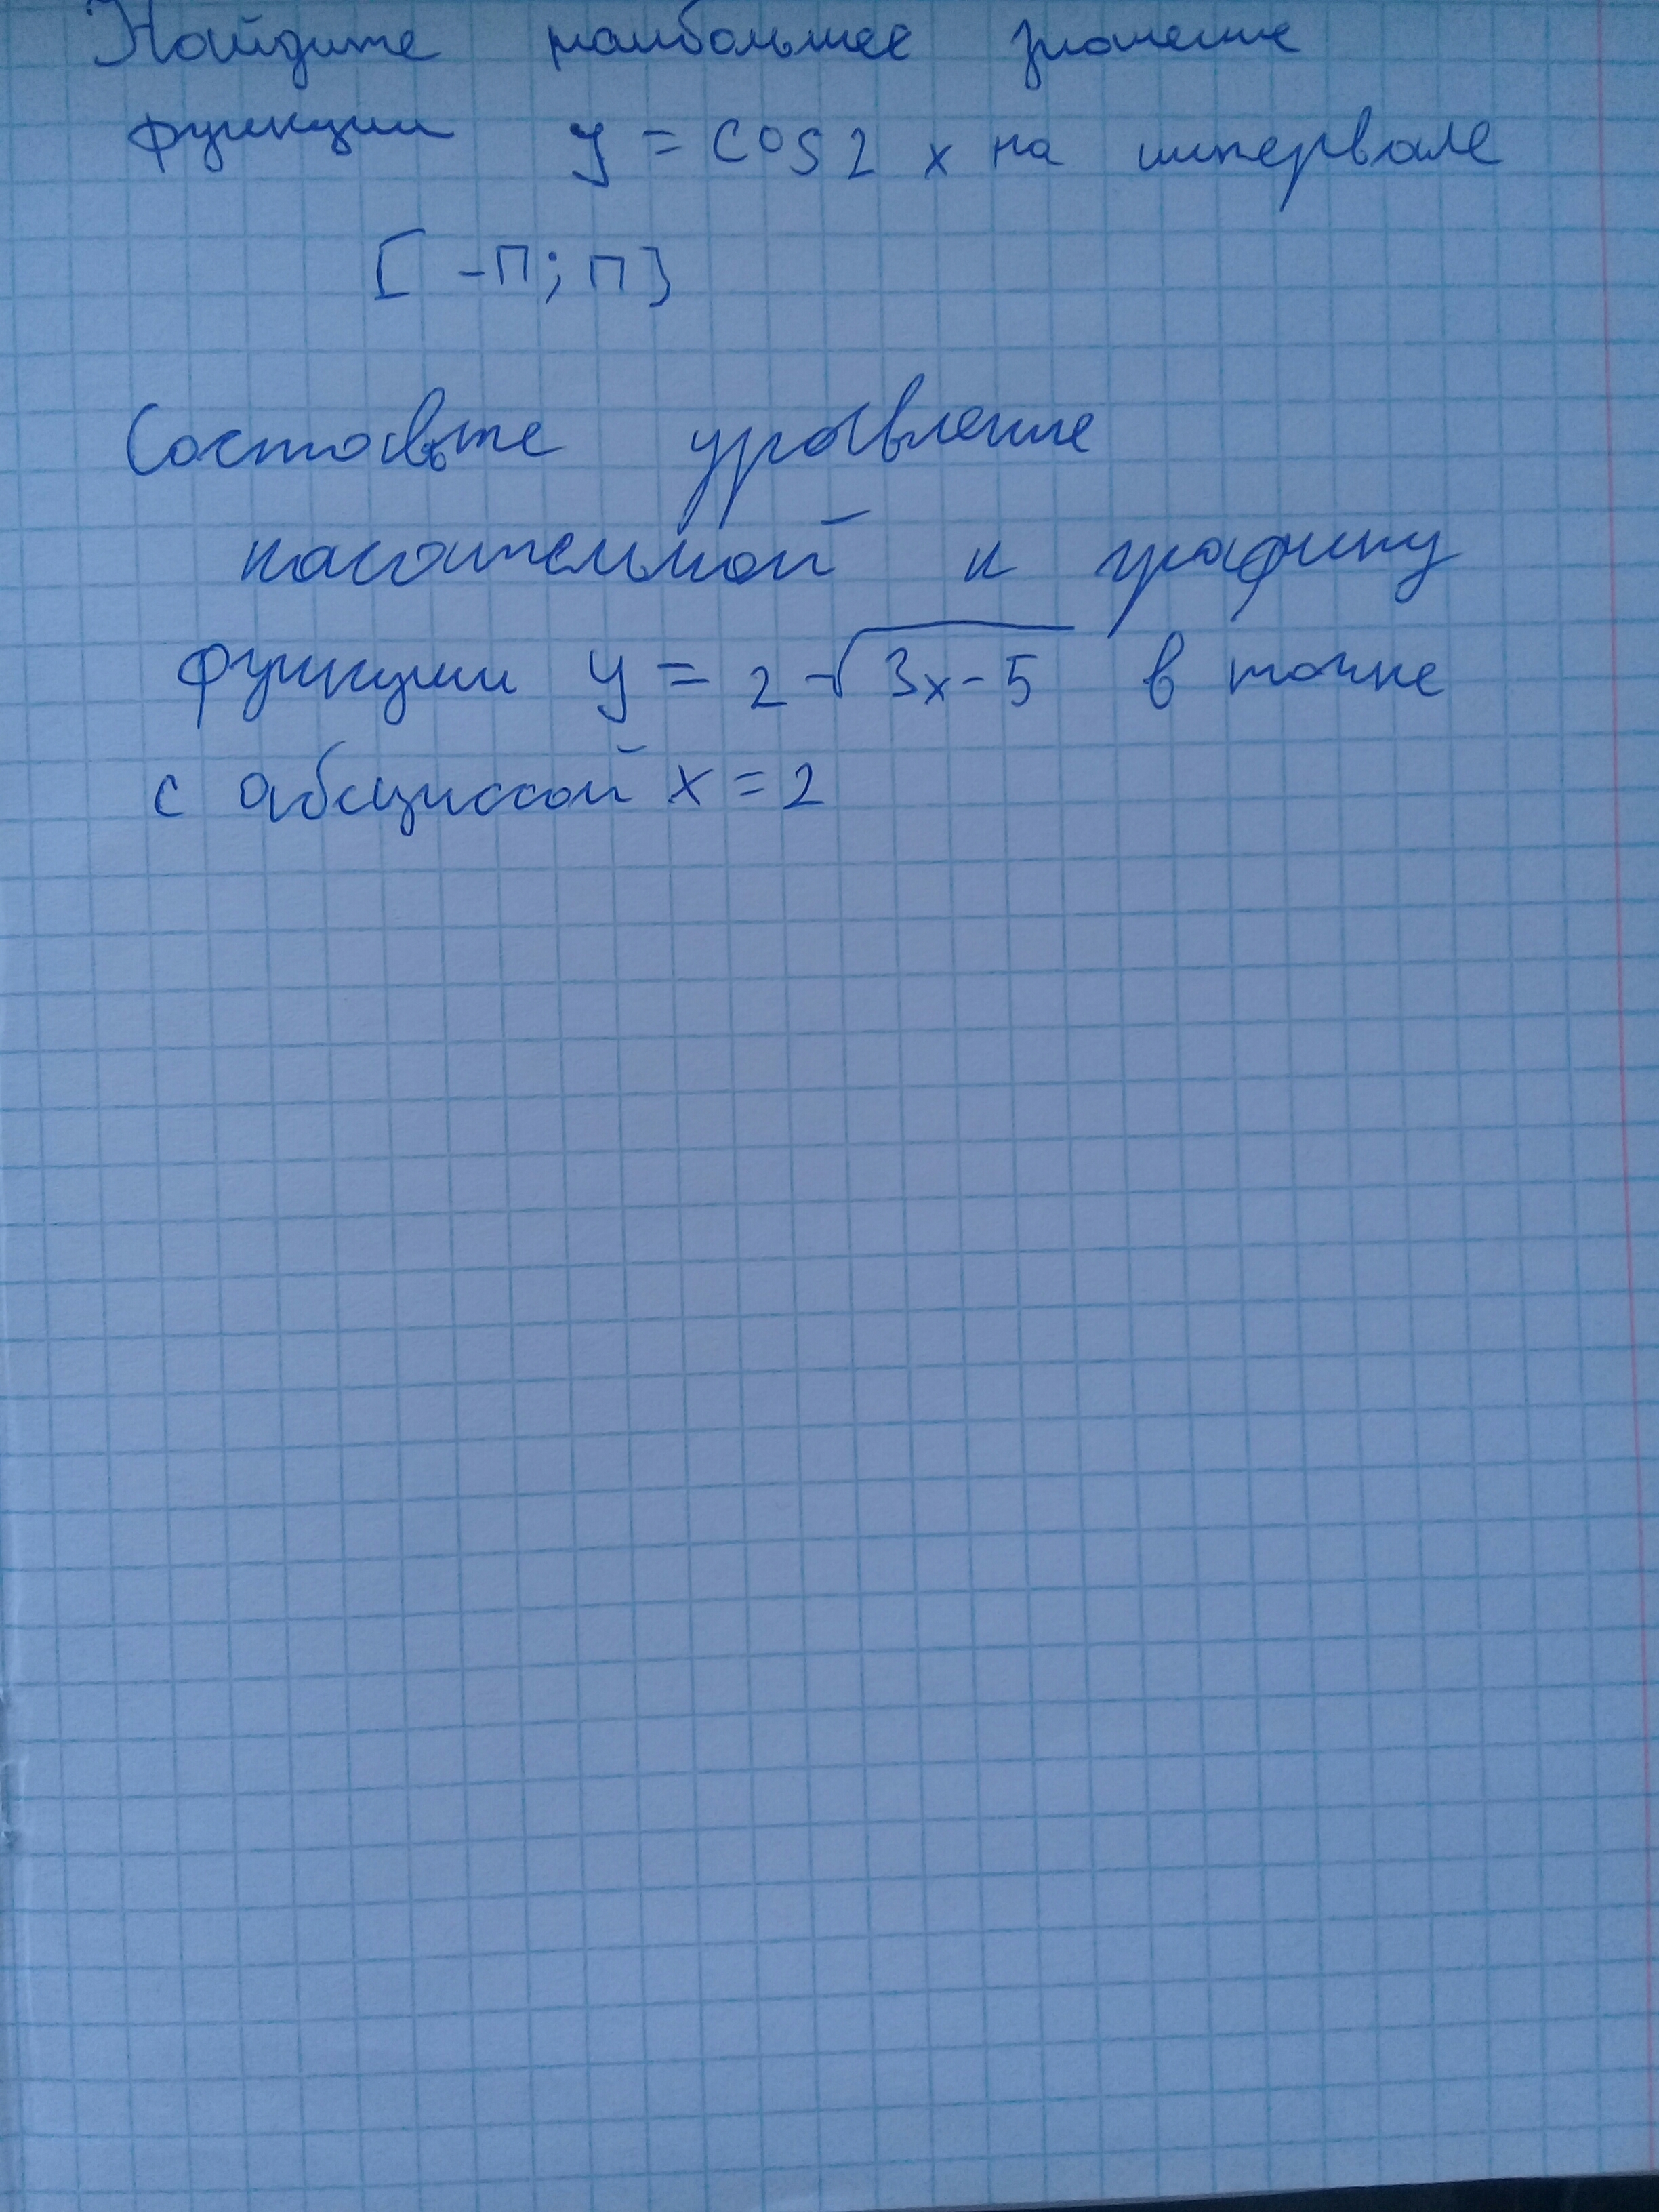 Найдите наибольшее значение
функции y = cos2x на интервале
[-П; П]
Составьте уравнение
касательной к графику
функции y = 2√(3x-5) в точке
с абсциссой x = 2